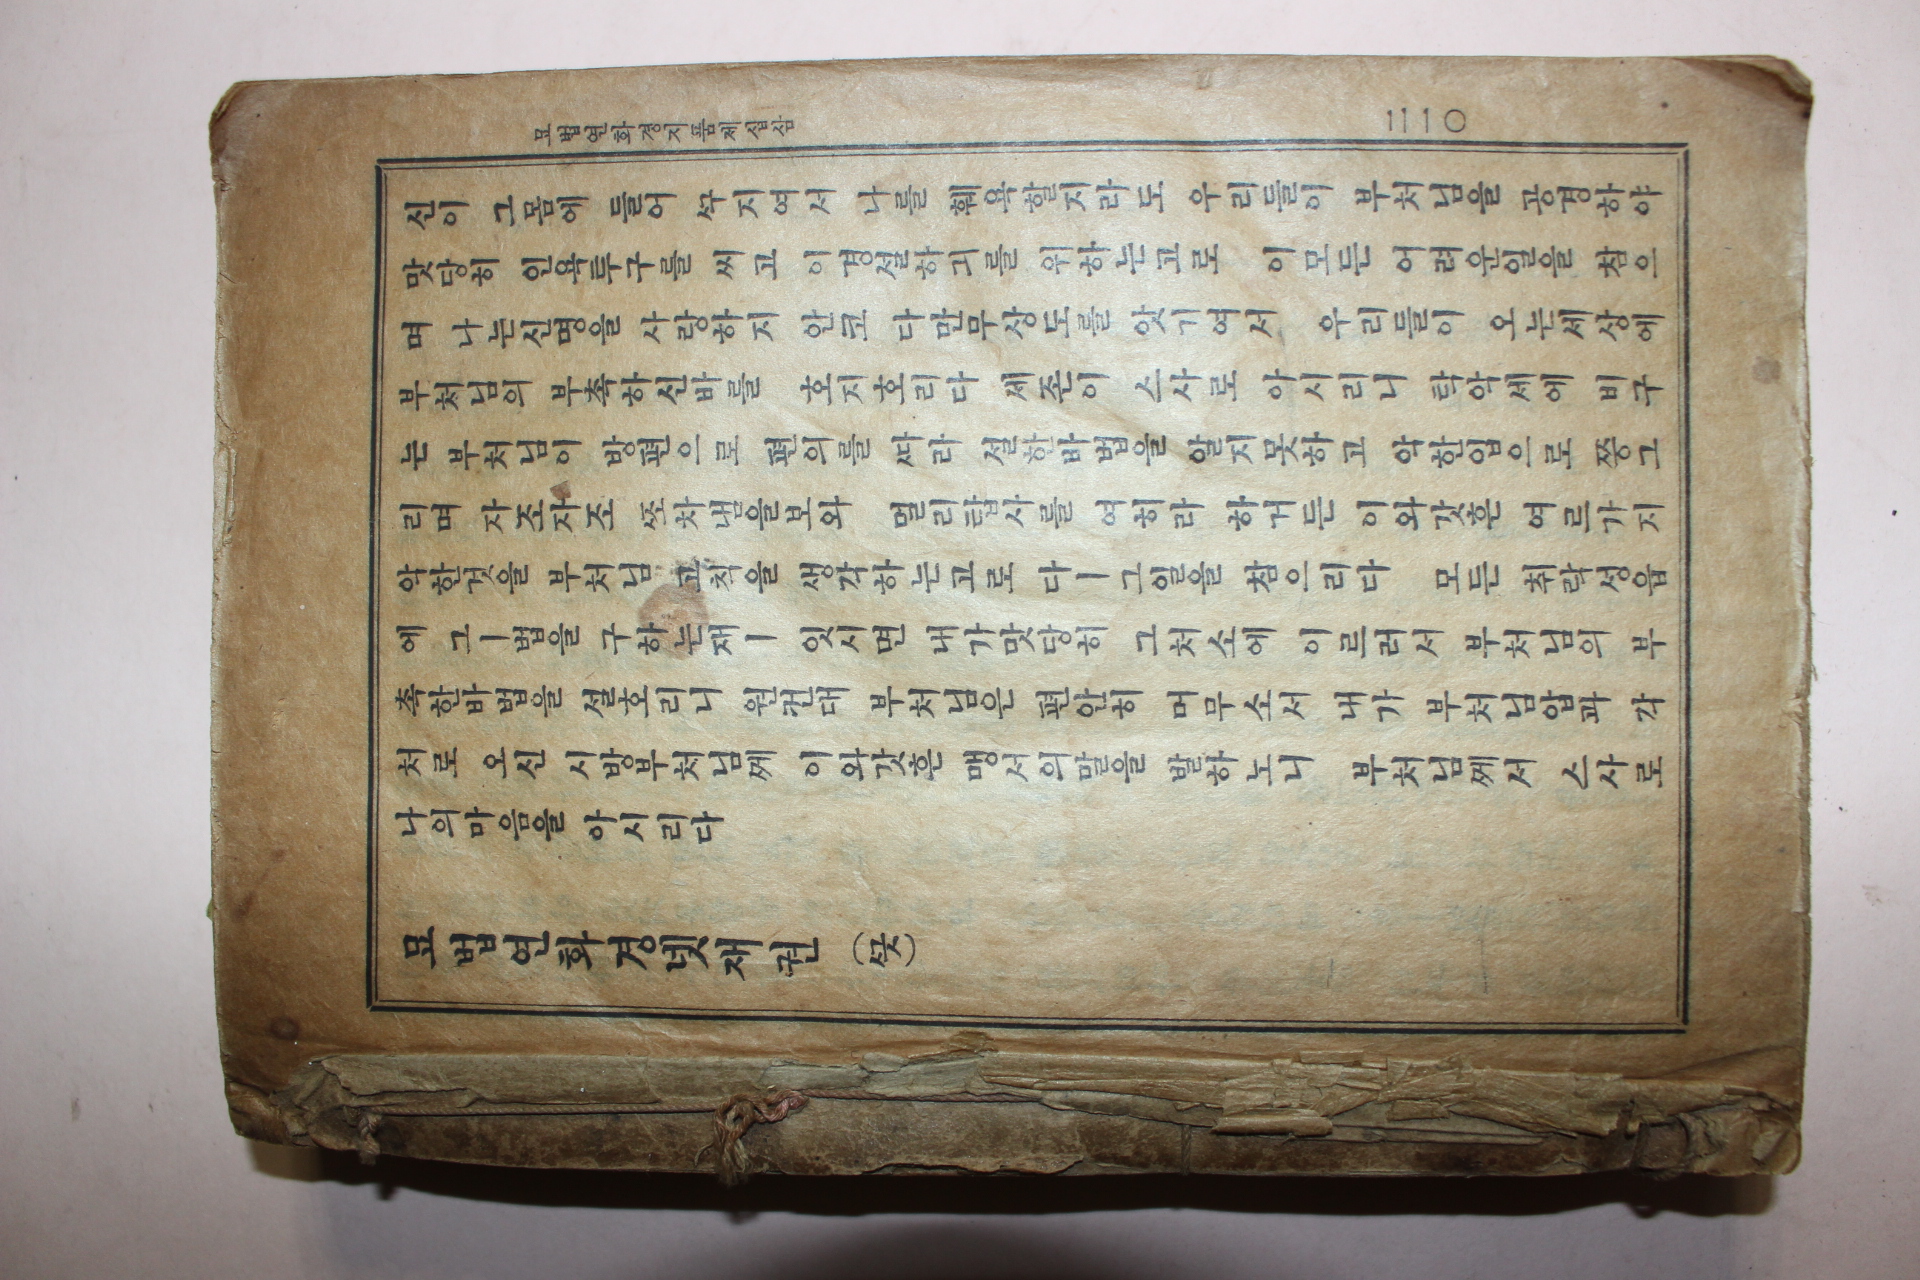 묘법연화경지품제십삼
二一〇
신이 그몸에 들어 싸지여서 나를 훼욕할지라도 우리들이 부처님을 공경하야
맛당히 인욕투구를 쓰고 이경설하기를 위하는고로 이모든 어려운일을 참으
며 나는신명을 사랑하지 안코 다만무상도를 앗기여서 우리들이 오는세상에
부처님의 부촉하신바를 호지호리다 세존이 스사로 아시리니 탁악세에 비구
는 부처님이 방편으로 편의를 싸라 설한바법을 알지못하고 악한입으로 쯩그
리며 자조자조 쪼차냄을보와 멀리탑사를 여히라 하거든 이와갓흔 여르가지
악한것을 부처님 고칙을 생각하는고로 다ㅣ그일을 참으리다 모든 취락성읍
에 그ㅣ법을 구하는재ㅣ 잇시면 내가맛당히 그처소에 이르러서 부처님의 부
촉한바법을 설호리니 원컨대 부처님은 편안히 머무소서 내가 부처님압과 각
처로 오신 시방부처님께 이와갓흔 맹서의말을 발하노니 부처님께서 스사로
나의마음을 아시리다
묘법연화경넷재권 (끗)